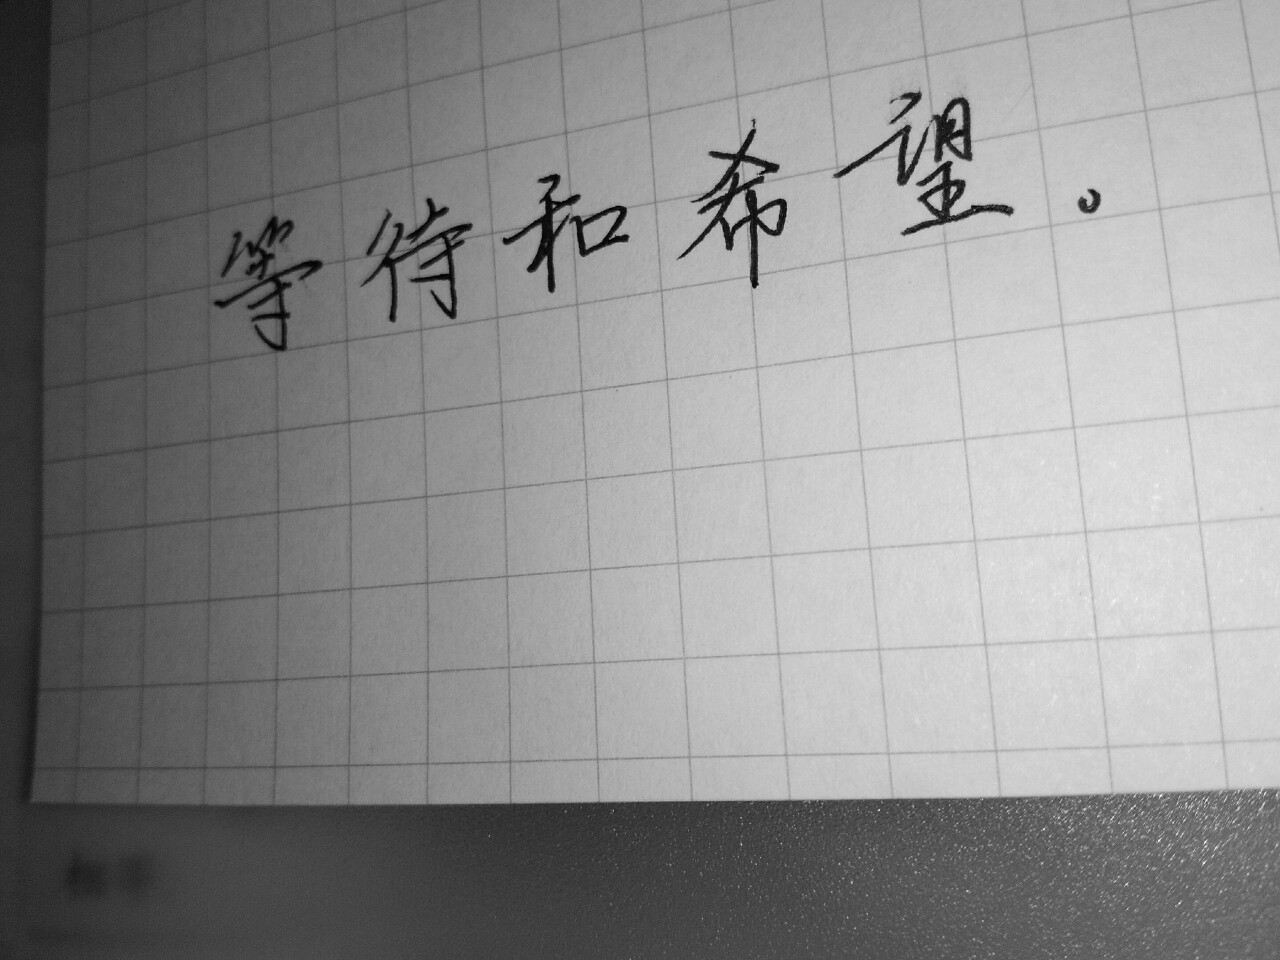 等待和希望。